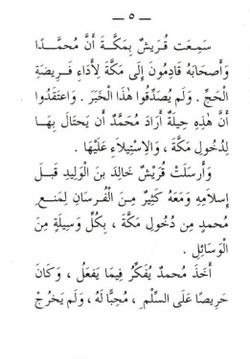 — ٥ —
سَمِعَت قُرَيْشٌ بِمَكَّةَ أَنَّ مُحَمَّدًا
وَأَصْحَابَهُ قَادِمُونَ إِلَى مَكَّةَ لِأَدَاءِ فَرِيضَةِ
الْحَجِّ . وَلَم يُصَدِّقُوا هٰذَا الْخَبَرَ . وَاعْتَقَدُوا
أَنَّ هٰذِهِ حِيلَةٌ أَرَادَ مُحَمَّدٌ أَن يَحتَالَ بِهَا
لِدُخُولِ مَكَّةَ ، وَالِاسْتِيلَاءِ عَلَيْهَا .
وَأَرسَلَتْ قُرَيْشٌ خَالِدَ بنَ الْوَلِيدِ قَبلَ
إِسلَامِهِ وَمَعَهُ كَثِيرٌ مِنَ الْفُرسَانِ لِمَنعِ
مُحمدٍ مِن دُخُولِ مَكَّةَ ، بِكُلِّ وَسِيلَةٍ مِنَ
الْوَسَائِلِ .
أَخَذَ مُحمدٌ يُفَكِّرُ فِيمَا يَفعَلُ ، وَكَانَ
حَرِيصًا عَلَى السِّلْمِ ، مُحِبًّا لَهُ ، وَلَم يَخرُجْ